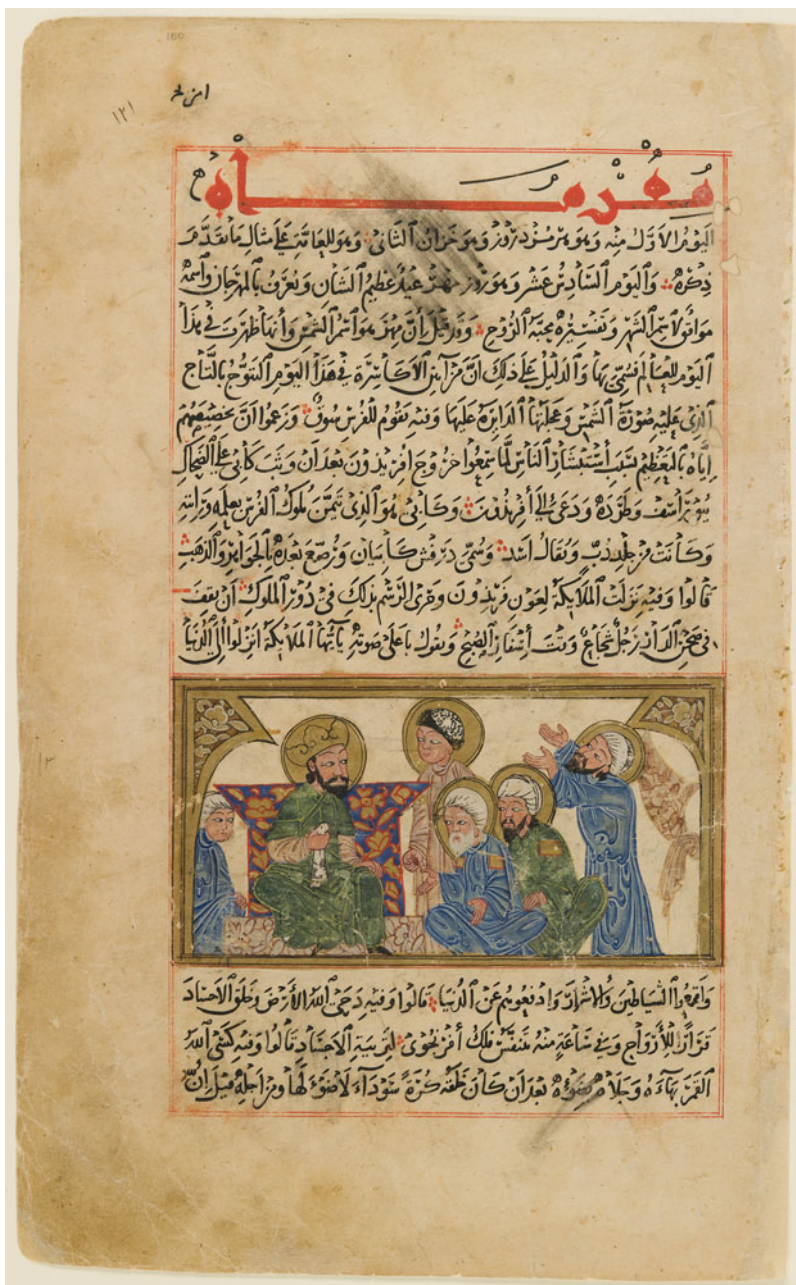 ١٢١
مهرماه
اليوم الاول منه وهو هرمزدروز وهو خزان الثانى وهو للعامة على مثال ما تقدم
ذكره واليوم السادس عشر وهو روز مهر عيد عظيم الشان ويعرف بالمهرجان واسمه
موافق لاسم الشهر وتفسيره محبة الروح وقد قيل أن مهر هو اسم الشمس وأنها ظهرت فى هذا
اليوم للعالم فسمى بها والدليل على ذلك ان من آيين الاكاسرة فى هذا اليوم التتوج بالتاج
الذى عليه صورة الشمس وعجلتها الدايرة عليها وفيه تقوم للفرس سوق وزعموا ان تخصيصهم
اياه بالتعظيم بسبب استبشار الناس لما سمعوا خروج افريذون بعد ان وثب كابى على الضحاك
بيوراسف وطرده ودعى الى أفريذون وكابى هو الذى تيمن ملوك الفرس بعلمه ورايته
وكانت من جلد دب ويقال اسد وسمى درفش كابيان ورصع بعده بالجواهر والذهب
قالوا وفيه نزلت الملايكة لعون فريذون وجرى الرسم بذلك فى دور الملوك أن يقف
فى صحن الدار رجل شجاع وقت أسفار الصبح ويقول باعلى صوته يا أيها الملايكة انزلوا الى الدنيا
واقمعوا الشياطين والاشرار وادفعوهم عن الدنيا قالوا وفيه دحى الله الارض وخلق الاجساد
قرارا للارواح وفى ساعة منه يتنفس فلك أفرنجوى لتربية الاجساد قالوا وفيه كسى الله
القمر بهاءه وجلاه بضوءه بعد ان كان خلقه كرة سوداء لا ضوء لها ومن اجله قيل ان